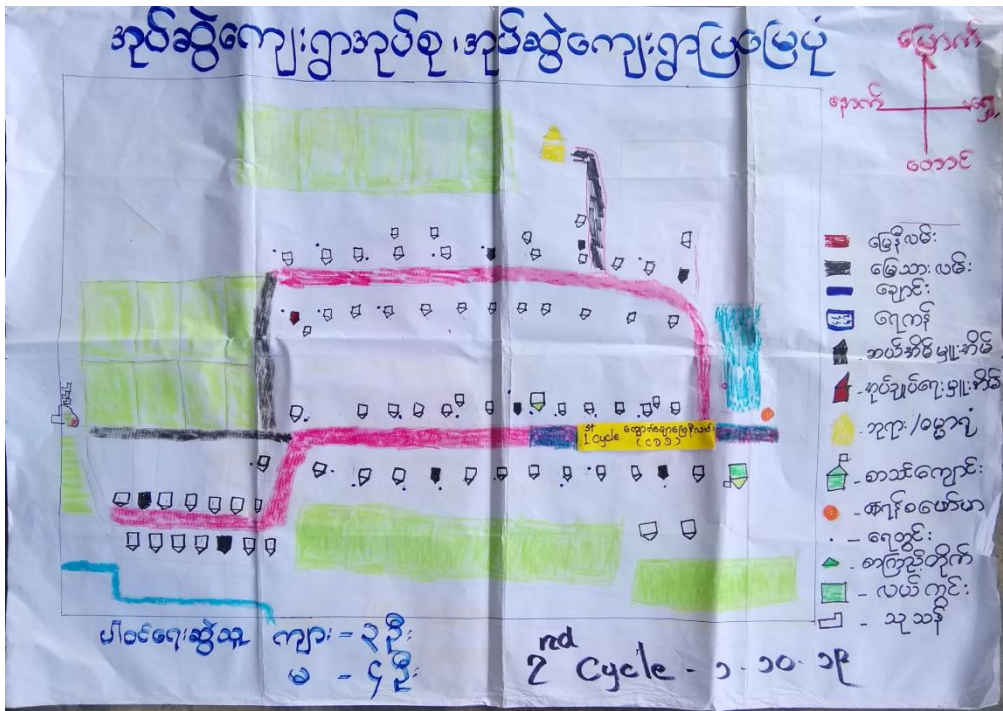 အုပ်ဆွဲကျေးရွာအုပ်စု၊အုပ်ဆွဲကျေးရွာပြမြေပုံ
မြောက်
နောက် ရှေ့
တောင်
မြေနီလမ်း
မြေသားလမ်း
ချောင်း
ရေကန်
ဆယ်အိမ်မှူးအိမ်
အုပ်ချုပ်ရေးမှူးအိမ်
ဘုရား/ဓမ္မာရုံ
- စာသင်ကျောင်း
- ထရန်စဖော်မာ
- ရေတွင်း
- စာကြည့်တိုက်
- လယ်ကွင်း
- သုသန်
1st Cycle ကျောက်ချောမြေနီလမ်း
(CDD)
ပါဝင်ရေးဆွဲသူ ကျား - ၃ဦး
မ - ၄ဦး
2nd Cycle - ၁.၁၀.၁၉